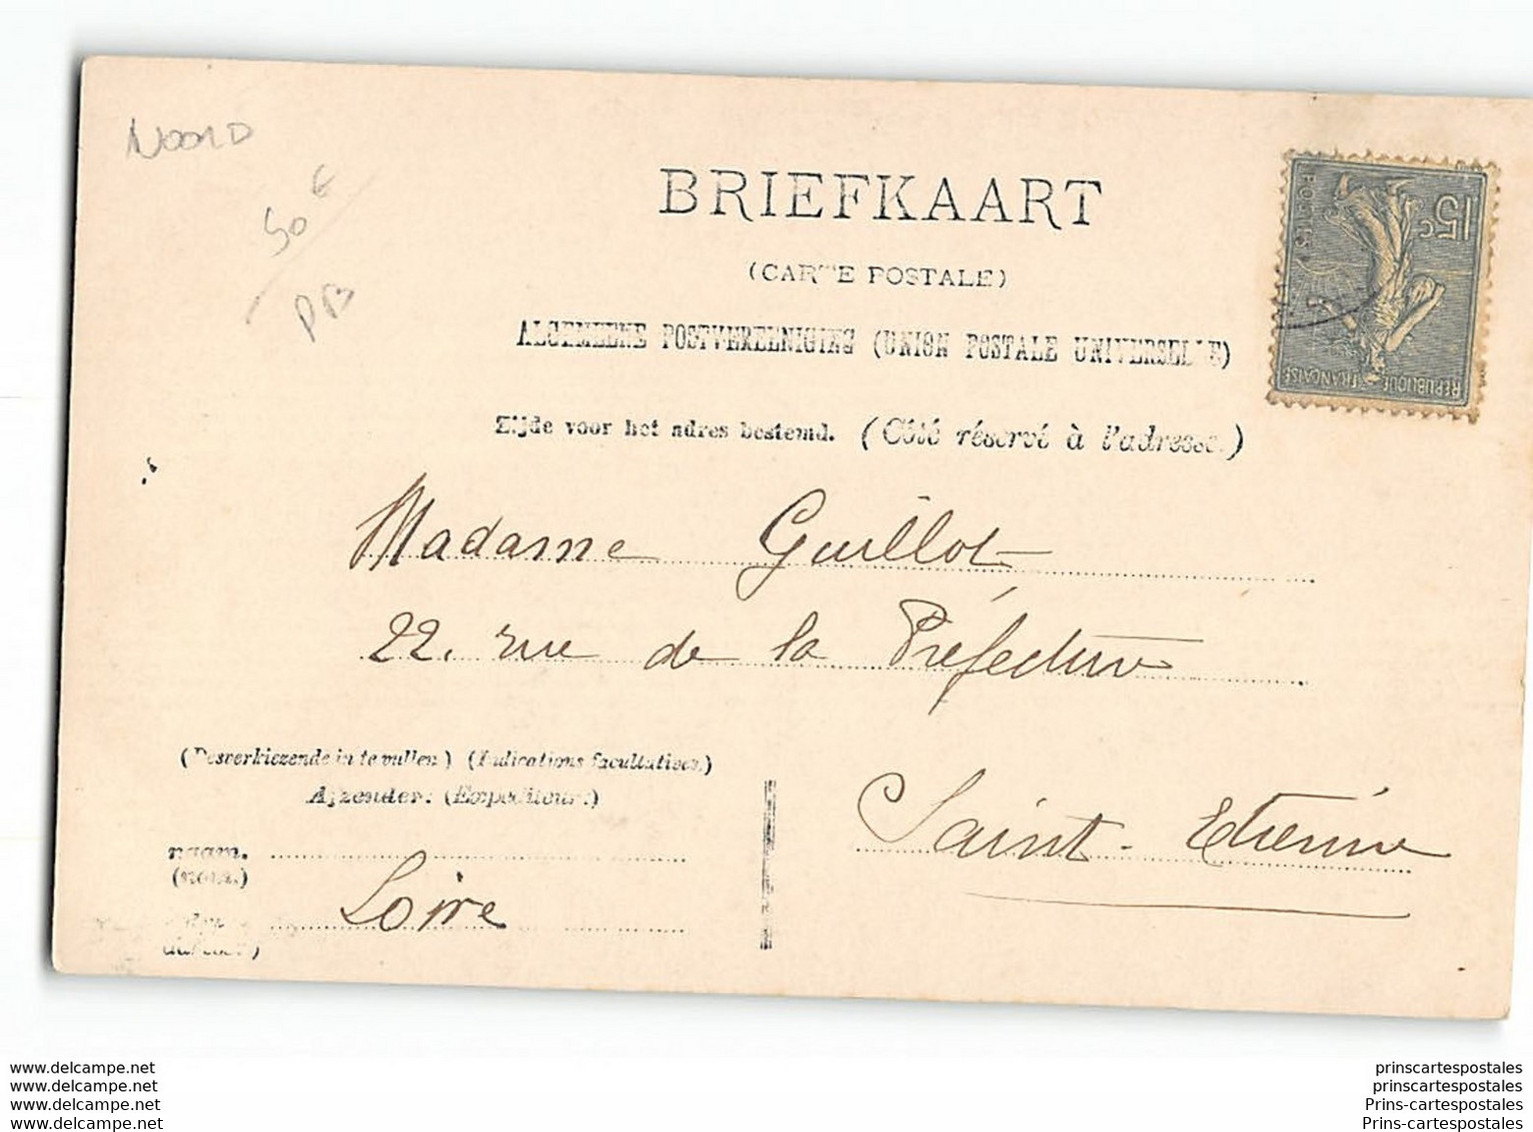 NOORD
50 €
PB
BRIEFKAART
(CARTE POSTALE)
ALGEMEENE POSTVEREENIGING (UNION POSTALE UNIVERSELLE)
Zijde voor het adres bestemd. (Côté réservé à l'adresse.)
15c
POSTES
REPUBLIQUE FRANÇAISE
Madame Guillot
22, rue de la Préfecture
Saint-Etienne
Loire
(Desverkiezende in te vullen) (Indications facultatives.)
Afzender: (Expéditeur:)
naam.
(nom.)
www.delcampe.net
www.delcampe.net
www.delcampe.net
www.delcampe.net
prinscartespostales
prinscartespostales
Prins-cartespostales
Prins-cartespostales